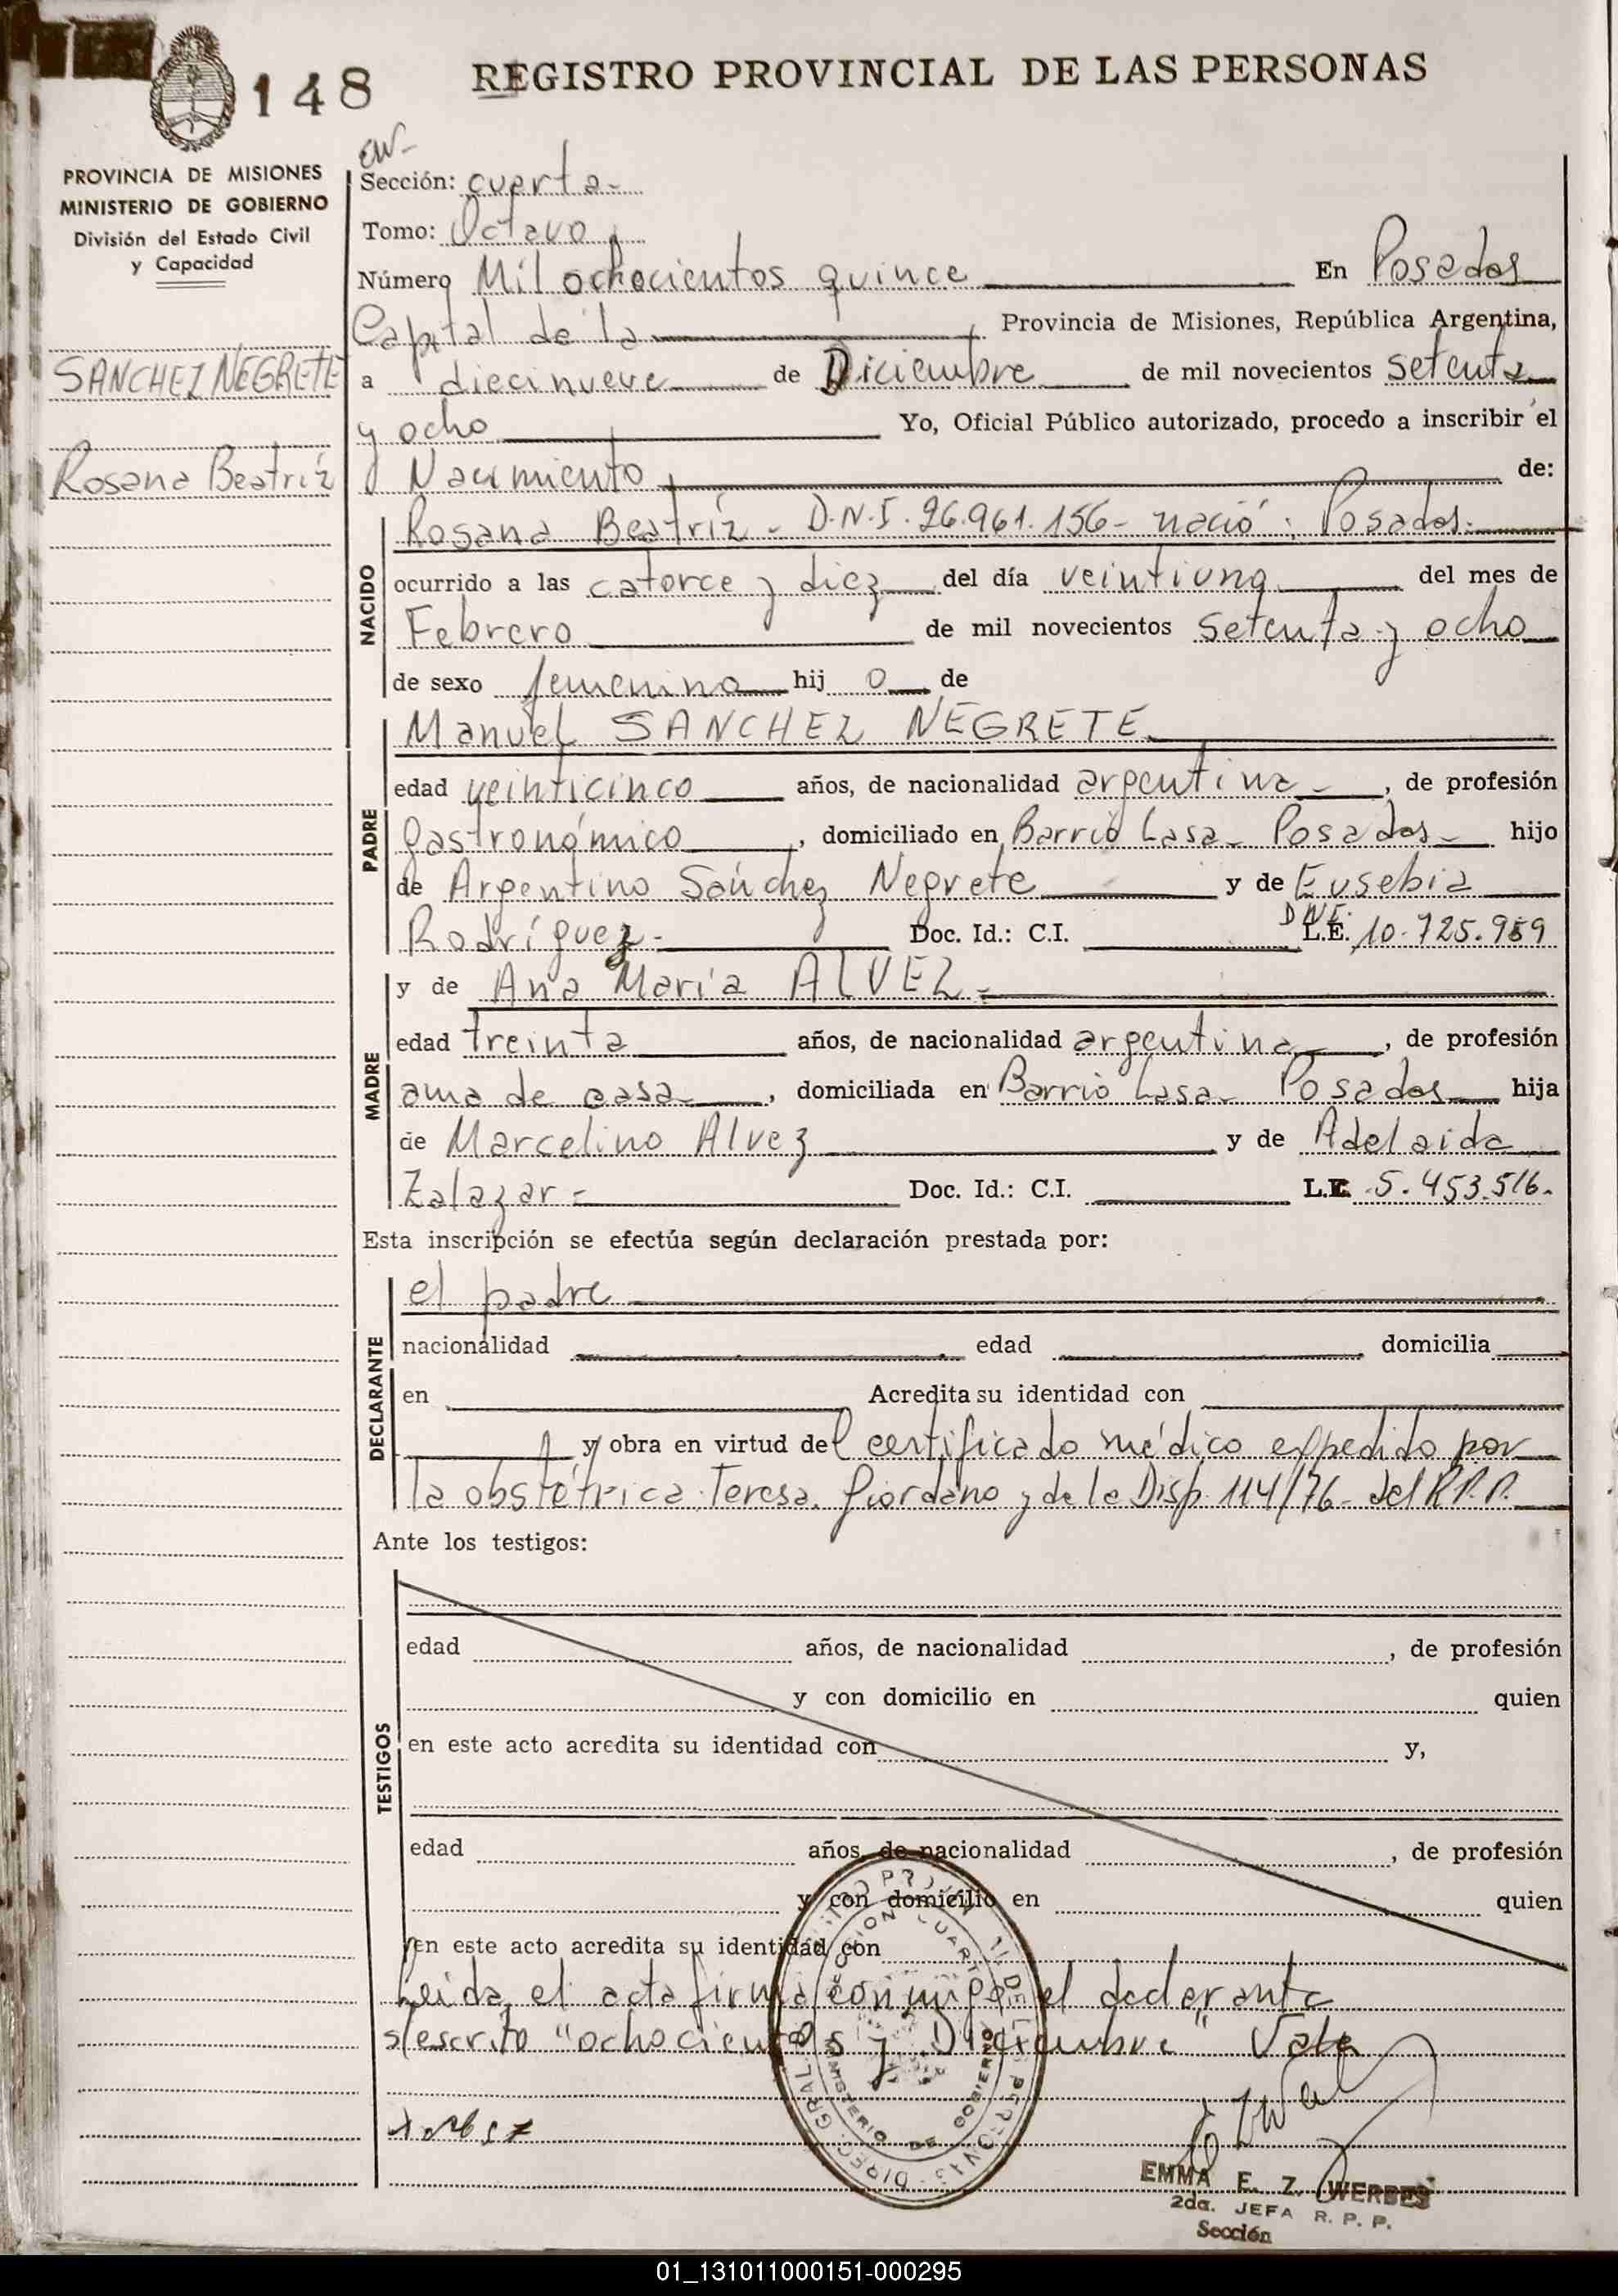 148
REGISTRO PROVINCIAL DE LAS PERSONAS
PROVINCIA DE MISIONES
MINISTERIO DE GOBIERNO
División del Estado Civil
y Capacidad
SANCHEZ NEGRETE
Rosana Beatríz
Sección: cuarta-
Tomo: Octavo
Número Mil ochocientos quince En Posadas
Capital de la Provincia de Misiones, República Argentina,
a diecinueve de Diciembre de mil novecientos setenta
y ocho Yo, Oficial Público autorizado, procedo a inscribir el
Nacimiento de:
NACIDO
Rosana Beatríz - D.N.I. 26.961.156- nació: Posadas.
ocurrido a las catorce y diez del día veintiuno del mes de
Febrero de mil novecientos setenta y ocho
de sexo femenino hij o de
PADRE
Manuel SANCHEZ NEGRETE
edad veinticinco años, de nacionalidad argentina-, de profesión
gastronómico, domiciliado en Barrio Lasa- Posadas- hijo
de Argentino Sánchez Negrete y de Eusebia
Rodríguez- Doc. Id.: C.I. D.N.I. L.E. 10.725.959
MADRE
y de Ana María ALVEZ-
edad treinta años, de nacionalidad argentina, de profesión
ama de casa-, domiciliada en Barrio Lasa- Posadas hija
de Marcelino Alvez y de Adelaida
Zalazar- Doc. Id.: C.I. L.E. 5.453.516.
Esta inscripción se efectúa según declaración prestada por:
DECLARANTE
el padre
nacionalidad edad domicilia
en Acredita su identidad con
y obra en virtud del certificado médico expedido por
la obstétrica Teresa Giordano y de la Disp. 114/76- del R.P.P.
Ante los testigos:
TESTIGOS
edad años, de nacionalidad , de profesión
y con domicilio en quien
en este acto acredita su identidad con y,
edad años, de nacionalidad , de profesión
y con domicilio en quien
en este acto acredita su identidad con
Leida el acta firma conmigo el declarante
s/escrito "ochocientos y Diciembre" Vale
SECCION CUARTA
MINISTERIO DE GOBIERNO
EMMA E. Z. WERBES
2da. JEFA R. P. P.
Sección
01_131011000151-000295